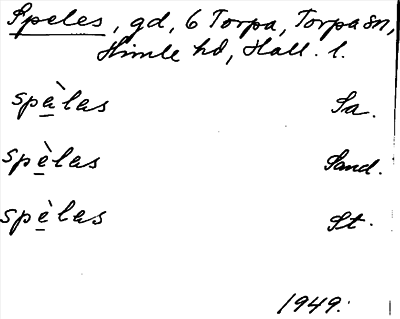 Speles, gd, 6 Torpa, Torpa sn,
Himle hd, Hall. l.
spà̱las Sa.
spè̱las Sand.
spè̱las St.
1949.